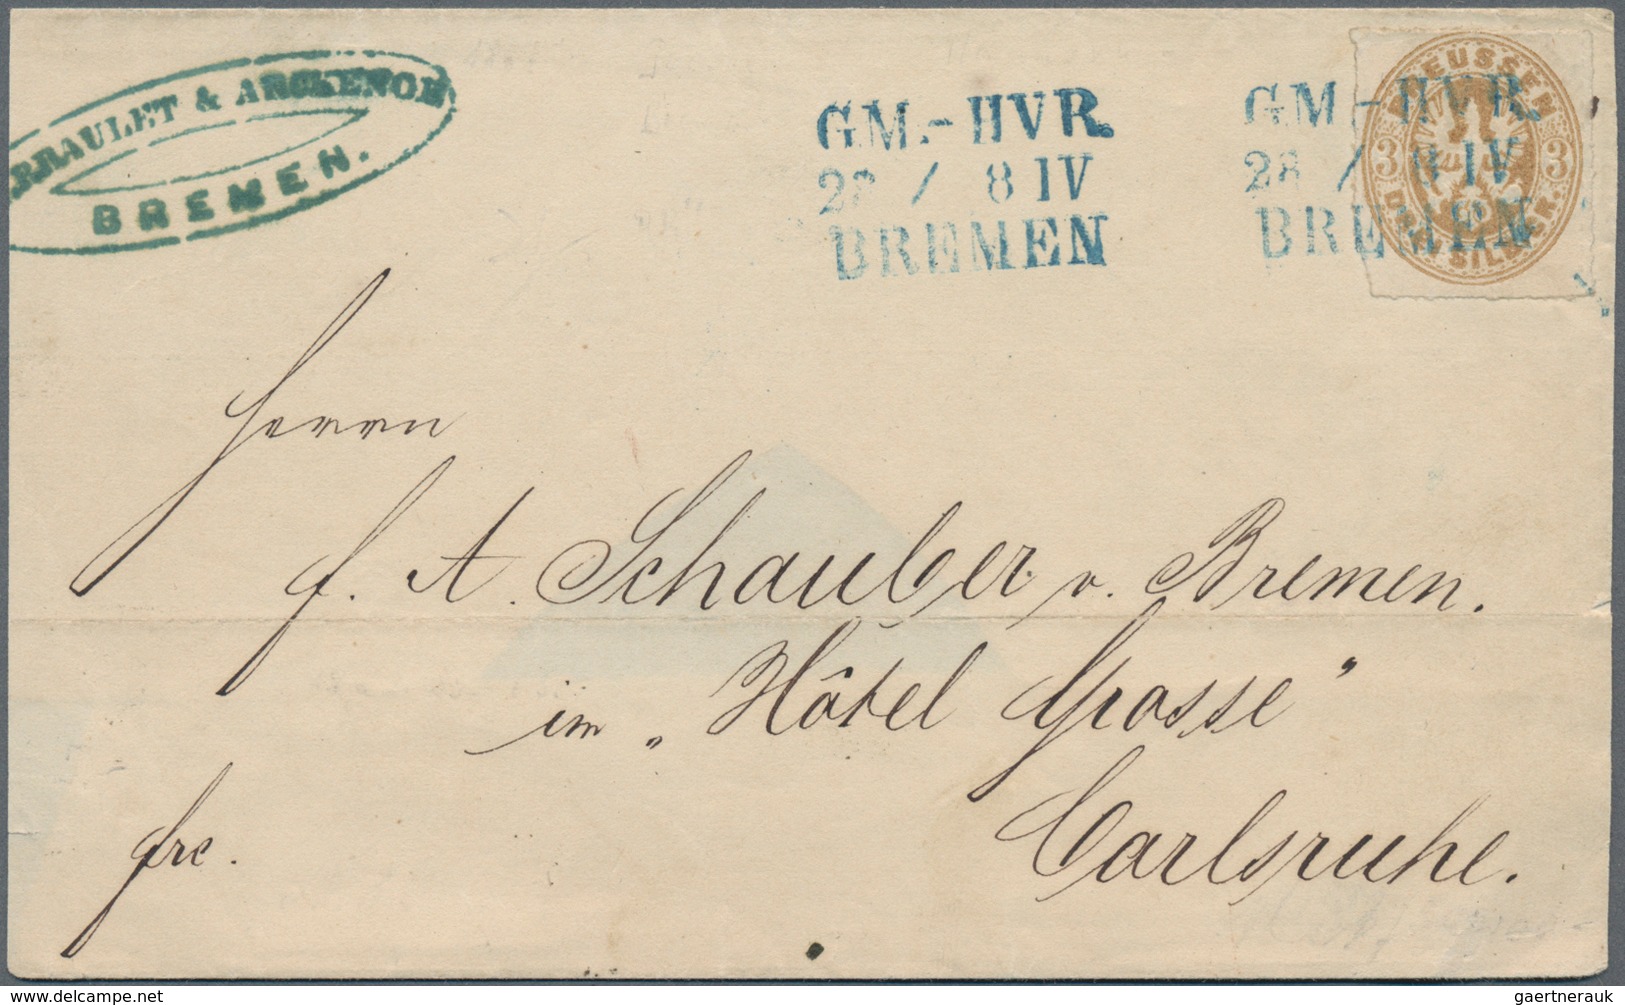 & ARCKENOE
BREMEN.
GM.-HVR.
28 / 8 IV
BREMEN
GM.-HVR.
28 / 8 IV
BREMEN
PREUSSEN
3 3
DREI SILB.GR.
Herrn
f. A. Schauber v. Bremen.
im „Hôtel Grosse"
Carlsruhe.
frc.
www.delcampe.net
gaertnerauk